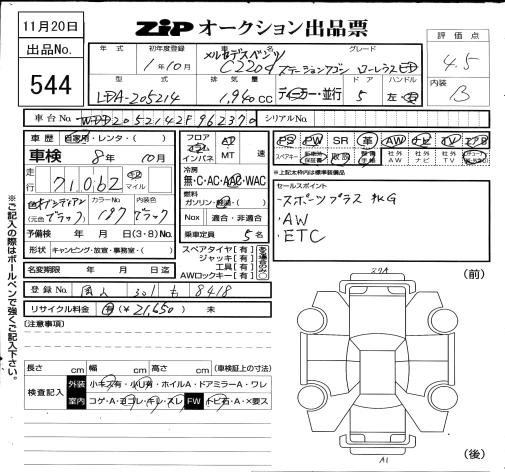 11月20日
出品No.
544
ZiP オークション出品票
評価点
4.5
内装
B
年式 初年度登録 車名 グレード
1年10月 メルセデスベンツ C220d ステーションワゴン ローレウスED
型式 排気量 ドア ハンドル
LDA-205214 1,940cc ディーラー・並行 5 左・右
車台No. WDD2052142F962370 シリアルNo.
車歴 自家用・レンタ・( )
車検 8年 10月
走行 71,062 km マイル
色 オブシディアン (元色 ブラック) カラーNo. 197 内装色 ブラック
予備検 年 月 日 (3・8) No.
形状 キャンピング・放宣・事務室・( )
名変期限 年 月 日迄
フロア コラム インパネ AT MT 速
冷房 無・C・AC・AAC・WAC
燃料 ガソリン・軽油・( )
Nox 適合・非適合
乗車定員 5名
スペアタイヤ【有】
ジャッキ【有】
工具【有】
AWロックキー【有】
PS PW SR 革 AW ナビ TV エアB
スペアキー 保証書 取説 記録簿 社外AW 社外ナビ 社外TV
※上記太枠内は標準装備品
セールスポイント
・スポーツプラスPKG
・AW
・ETC
登録No. 301 も 8418
リサイクル料金 有(¥21,650) 未
(注意事項)
長さ cm 幅 cm 高さ cm (車検証上の寸法)
検査記入 外装 小キズ有・小U有・ホイルA・ドアミラーA・ワレ
室内 コゲ・A・ヨゴレ・キレ・スレ FW トビ石・A・×要ス
(前)
(後)
A1
※ご記入の際はボールペンで強くご記入下さい。